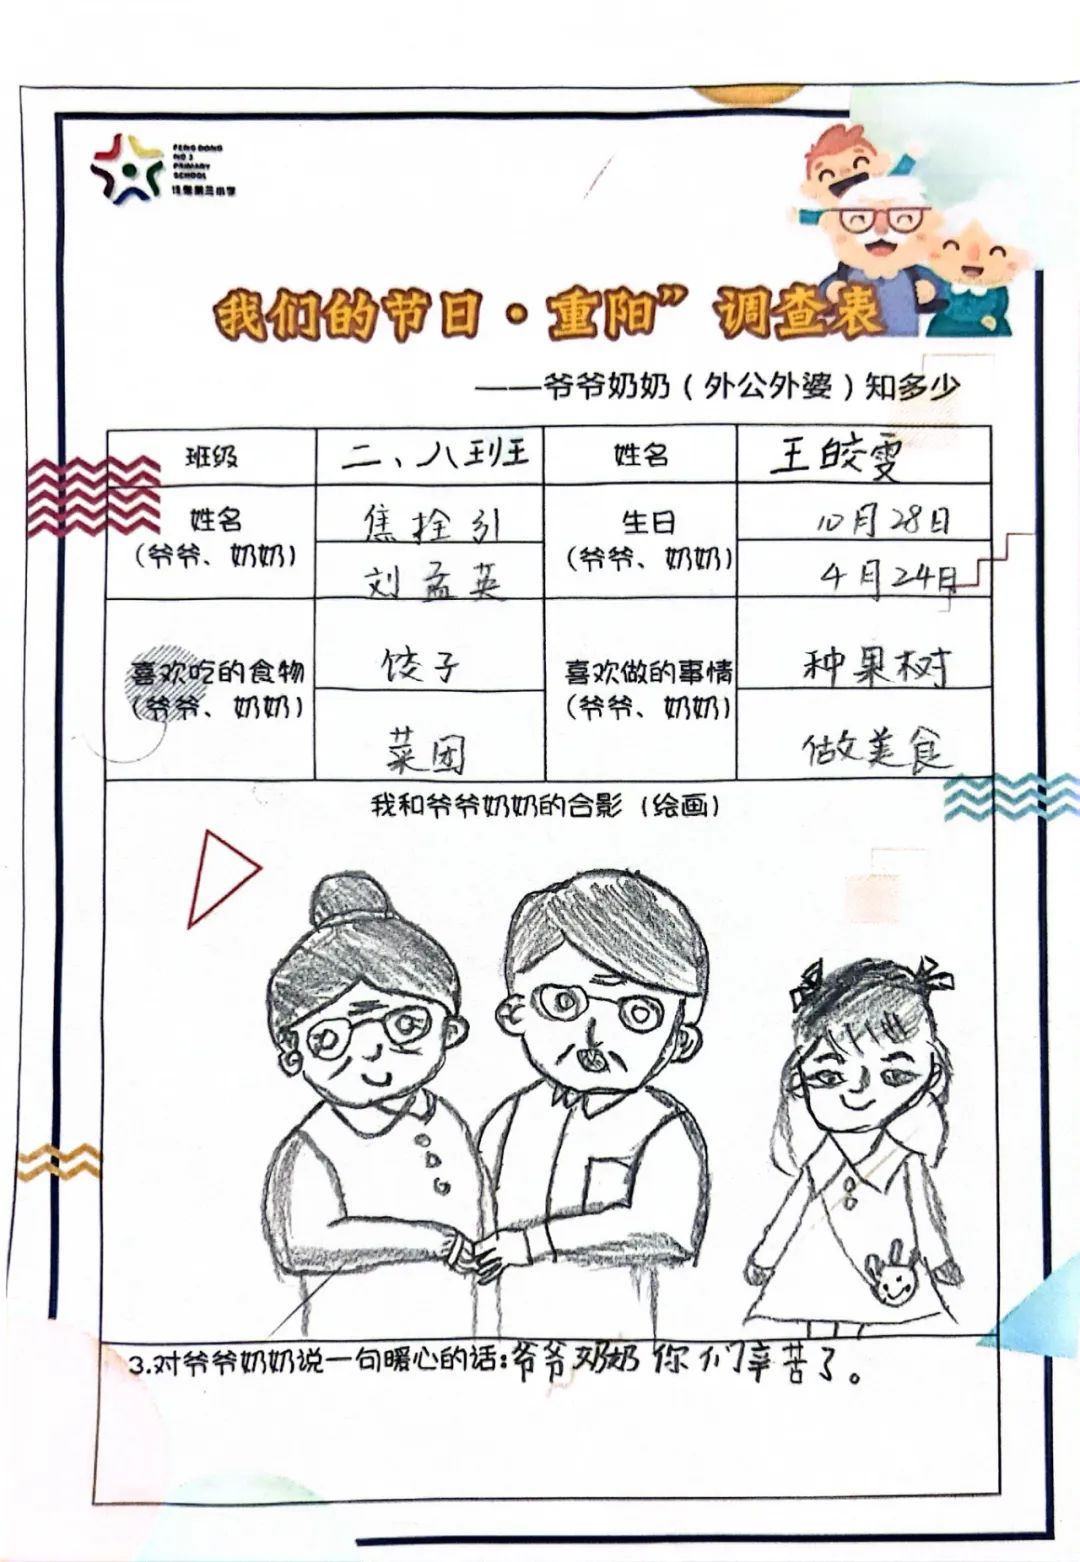 FENG DONG
NO 3
PRIMARY
SCHOOL
沣东第三小学
我们的节日·重阳”调查表
——爷爷奶奶（外公外婆）知多少
班级 二、八班 姓名 王皎雯
姓名
（爷爷、奶奶）
焦拴引
刘孟英
生日
（爷爷、奶奶）
10月28日
4月24日
喜欢吃的食物
（爷爷、奶奶）
饺子
菜团
喜欢做的事情
（爷爷、奶奶）
种果树
做美食
我和爷爷奶奶的合影（绘画）
3.对爷爷奶奶说一句暖心的话:爷爷奶奶你们辛苦了。